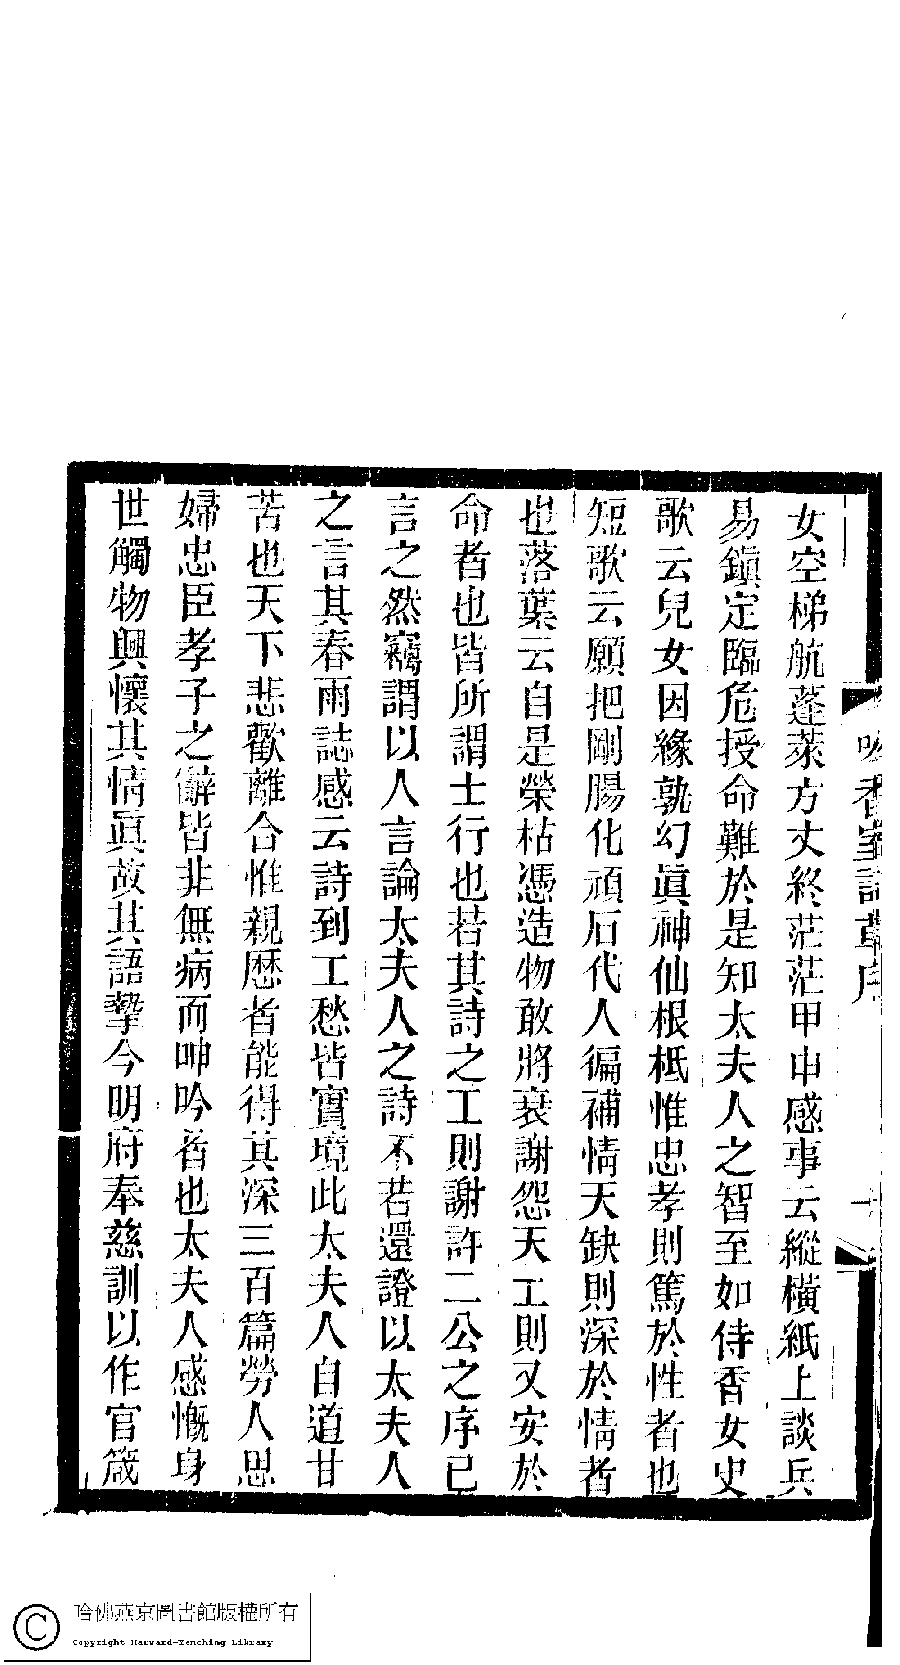 女空梯航蓬萊方丈終茫茫甲申感事云縱橫紙上談兵
易鎭定臨危授命難於是知太夫人之智至如侍香女史
歌云兒女因緣孰幻眞神仙根柢惟忠孝則篤於性者也
短歌云願把剛腸化頑石代人徧補情天缺則深於情者
也落葉云自是榮枯憑造物敢將衰謝怨天工則又安於
命者也皆所謂士行也若其詩之工則謝許二公之序已
言之然竊謂以人言論太夫人之詩不若還證以太夫人
之言其春雨誌感云詩到工愁皆實境此太夫人自道甘
苦也天下悲歡離合惟親歴者能得其深三百篇勞人思
婦忠臣孝子之辭皆非無病而呻吟者也太夫人感慨身
世觸物興懷其情眞故其語摯今明府奉慈訓以作官箴
香室詩草序
一
哈佛燕京圖書館版權所有
Copyright Harvard-Yenching Library